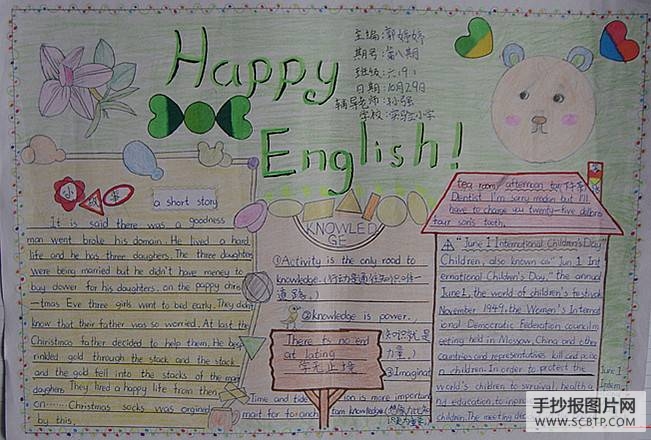 Happy
English!
主编:郭婷婷
期号:第八期
班级:六(9)
日期:10月29日
辅导老师:孙强
学校:实验小学
小故事
a short story
It is said there was a goodness
man went broke his domain. He lived a hard
life and he has three daughters. The three daughters
were being married but he didn't have money to
buy dower for his daughters. on the pappy chris
-tmas Eve three girls went to bed early. They didn't
know that their father was so worried. At last the
Chirstmas father decided to help them. He besp
rinkled gold through the stack and the stack
and the gold fell into the stacks of the man
daughters They lired a happy life from then
on……Christmas socks was orgined
by this.
KNOWLED
GE
①Activity is the only road to
knowledge.(行动是通往知识的唯一
道路.)
②knowledge is power.
知识就是
力量.)
③Imaginat
ion is more important
tam knowledge.
There is no end
at lating
学无止境
Time and tide
wait for
tea room, afternoon tea,下午茶
Dentist I'm sorry madam but I'll
have to charge you twenty-five dollars
four son's tooth.
"June 1 International Children's Day"
Children, also known as "Jun 1 Int
ernational Children's Day," the annual
June 1, the world of children's festival
November 1949, the Women's Internat
ional Democratic Federation council
eeting held in Moscow, China and other
countries and representatives kill and poiso
n children. In order to protect the
world's children to survival, health a
nd education, to
children. The meeting
手抄报图片网
WWW.SCBTP.COM